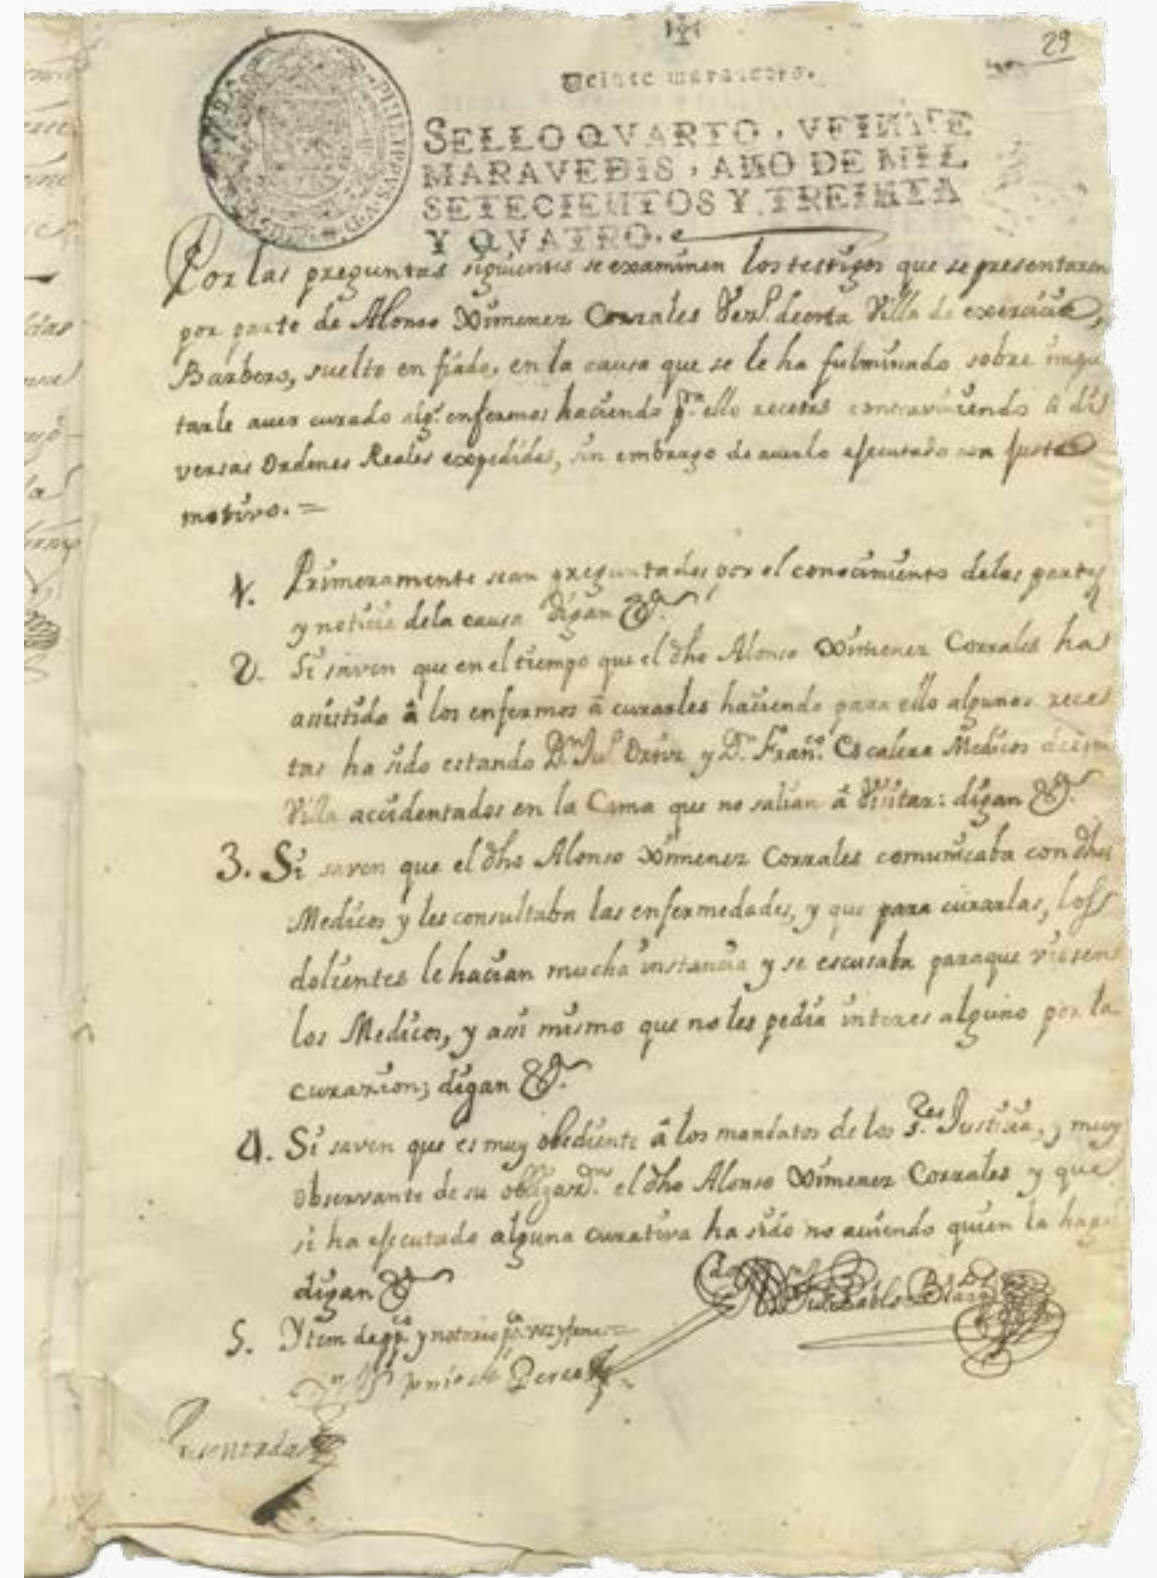 29
Veinte maravedis.
SELLO QVARTO, VEINTE
MARAVEDIS, AÑO DE MIL
SETECIENTOS Y TREINTA
Y QVATRO.
Por las preguntas siguientes se examinen los testigos que se presentaren
por parte de Alonso Ximenez Corrales Vez.º de esta Villa de exercicio,
Barbero, suelto en fiado, en la causa que se le ha fulminado sobre impu
tarle aver curado alg.s enfermos haciendo p.ra ello recetas contraviniendo à di
versas Ordenes Reales expedidas, sin embargo de averlo efecutado con justo
motivo. =
1. Primeramente sean preguntados por el conocimiento de las partes
y noticia de la causa digan &.ª
2. Si saven que en el tiempo que el dho Alonso Ximenez Corrales ha
asistido â los enfermos â curarles haciendo para ello algunas rece
tas ha sido estando D.n Ju.º y D.n Fran.co Escalera Medicos de esta
Villa accidentados en la Cama que no salian â Visitar: digan &.ª
3. Si saven que el dho Alonso Ximenez Corrales comunicaba con dhos
Medicos y les consultaba las enfermedades, y que para curarlas, los
dolientes le hacian mucha instancia y se escusaba para que viesen
los Medicos, y assi mismo que no les pedia interes alguno por la
curazion; digan &.ª
4. Si saven que es muy obediente â los mandatos de los S.res Justicia, y muy
observante de su obligaz.on el dho Alonso Ximenez Corrales y que
si ha efecutado alguna curativa ha sido no aviendo quien la haga
digan &.ª
5. Ytem de pp.co y notorio p.ca voz y fama =
Perea
Presentada